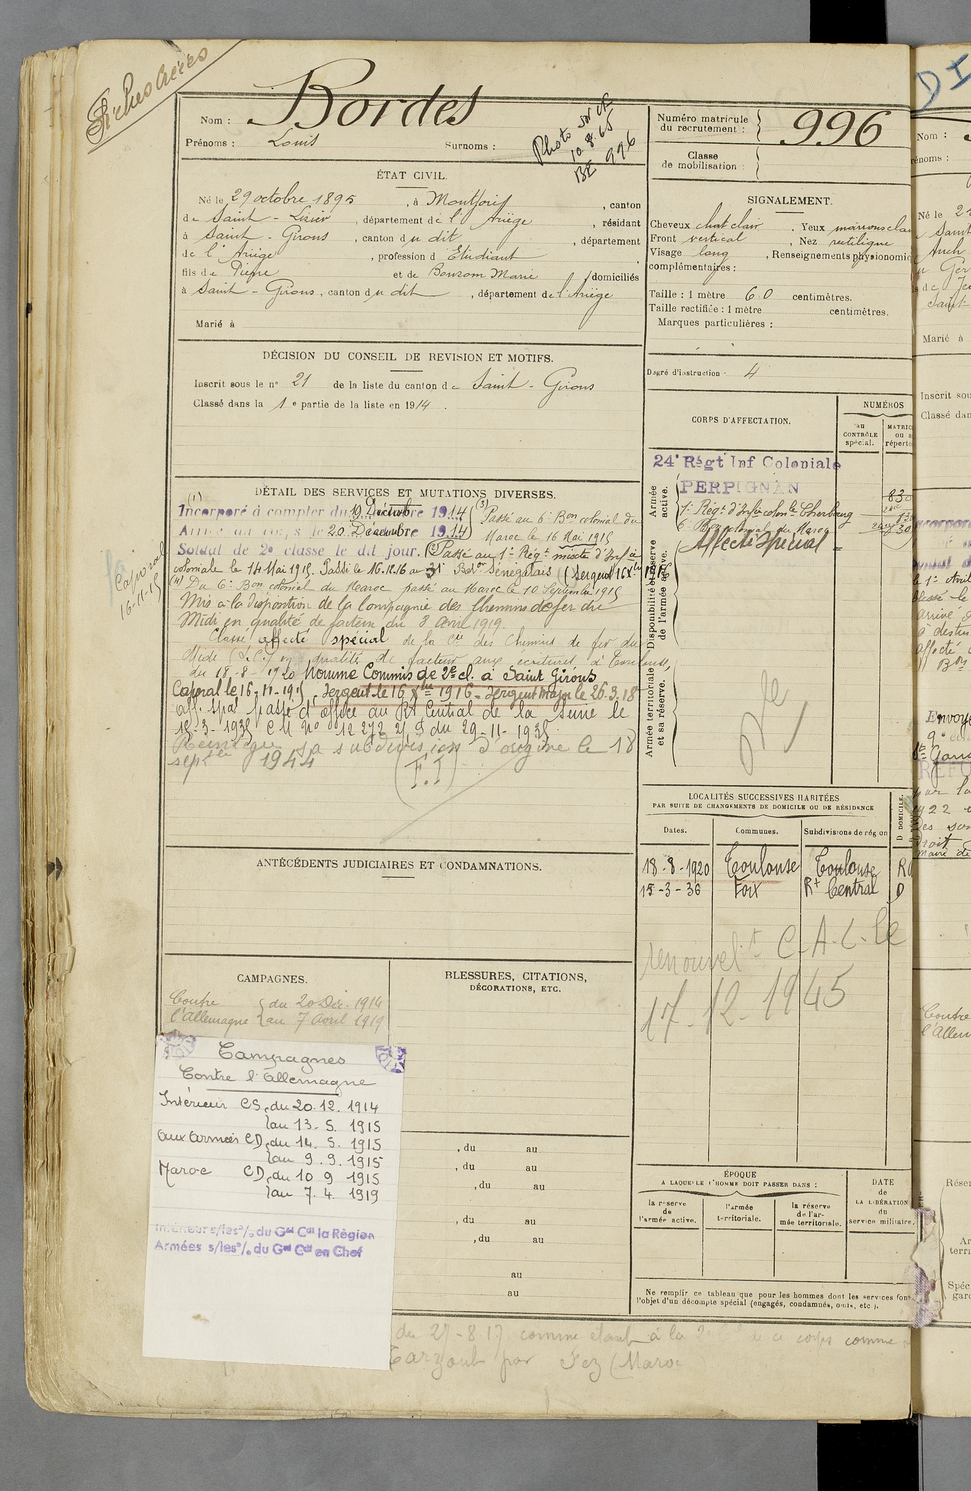 Nom : Bordes
Prénoms : Louis Surnoms :
Photo sur CE
10.8.65
BE 996
Numéro matricule du recrutement : 996
Classe de mobilisation :
ÉTAT CIVIL.
Né le 29 octobre 1895, à Montjoie, canton
de Saint-Lizier, département de l'Ariège, résidant
à Saint-Girons, canton du dit, département
de l'Ariège, profession d'Etudiant
fils de Pierre et de Bonzom Marie domiciliés
à Saint-Girons, canton du dit, département de l'Ariège
Marié à
SIGNALEMENT.
Cheveux chat clair. Yeux marrons clair
Front vertical, Nez rectiligne
Visage long, Renseignements physionomi
complémentaires :
Taille : 1 mètre 60 centimètres.
Taille rectifiée : 1 mètre centimètres.
Marques particulières :
Degré d'instruction : 4
DÉCISION DU CONSEIL DE REVISION ET MOTIFS.
Inscrit sous le n° 21 de la liste du canton de Saint-Girons
Classé dans la 1e partie de la liste en 1914.
CORPS D'AFFECTATION.
NUMÉROS
au CONTRÔLE spécial.
MATRIC
ou
réperto
Armée active.
24e Régt Inf Coloniale
PERPIGNAN
1er Régt d'Infie colonle Cherbourg
6e Bon colonial du Maroc
Affecté Spécial
Disponibilité et réserve de l'armée active.
Armée territoriale et sa réserve.
DÉTAIL DES SERVICES ET MUTATIONS DIVERSES.
(1) Incorporé à compter du 19 Décembre 1914
Arrivé au corps le 20 Décembre 1914
Soldat de 2e classe le dit jour.
(3) Passé au 6e Bon colonial du
Maroc le 16 Mai 1915
(2) Passé au 1er Régt mixte d'Infie
coloniale le 14 Mai 1915. Passé le 16.12.16 au 31e Baton Sénégalais (Sergent 16 Xbre 1916
(4) Du 6e Bon colonial du Maroc passé au Maroc le 10 Septembre 1915
Mis à la disposition de la Compagnie des Chemins de fer du
Midi en qualité de facteur du 8 Avril 1919
Classé affecté spécial de la Cie des Chemins de fer du
Midi (S.C.) en qualité de facteur aux écritures, à Toulouse,
du 18-8-1920 Nommé Commis de 2e cl. à Saint Girons
Caporal le 16-11-915 - Sergent le 16 Xbre 1916 - Sergent Major le 26.3.18
aff. spal passé d'office au Rt Central de la Seine le
15-3-1936 C.M. No 12272 2/S du 29-11-1935
Réintègre sa subdivision d'origine le 18
septe 1944 (F.I)
Caporal
16-11-15
ANTÉCÉDENTS JUDICIAIRES ET CONDAMNATIONS.
LOCALITÉS SUCCESSIVES HABITÉES
PAR SUITE DE CHANGEMENTS DE DOMICILE OU DE RÉSIDENCE
Dates. Communes. Subdivisions de région
18-8-1920 Toulouse Toulouse
15-3-36 Foix Rt Central D
renouvelt C.A.L. le
17-12-1945
CAMPAGNES.
Contre l'Allemagne du 20 Déc. 1914
au 7 Avril 1919
BLESSURES, CITATIONS,
DÉCORATIONS, ETC.
Campagnes
Contre l'Allemagne
Intérieur CS du 20.12.1914
au 13.5.1915
aux Armées CD du 14.5.1915
au 9.9.1915
Maroc CD du 10.9.1915
au 7.4.1919
Intérieur s/les o/ du Gal Cdt la Région
Armées s/les o/ du Gal Cdt en Chef
, du au
, du au
, du au
, du au
, du au
au
au
ÉPOQUE
A LAQUELLE L'HOMME DOIT PASSER DANS :
la réserve de l'armée active.
l'armée territoriale.
la réserve de l'armée territoriale.
DATE
de
LA LIBÉRATION
du
service militaire.
Ne remplir ce tableau que pour les hommes dont les services font
l'objet d'un décompte spécial (engagés, condamnés, omis, etc.).
du 27-8 17 comme étant à la
par Fez (Maroc